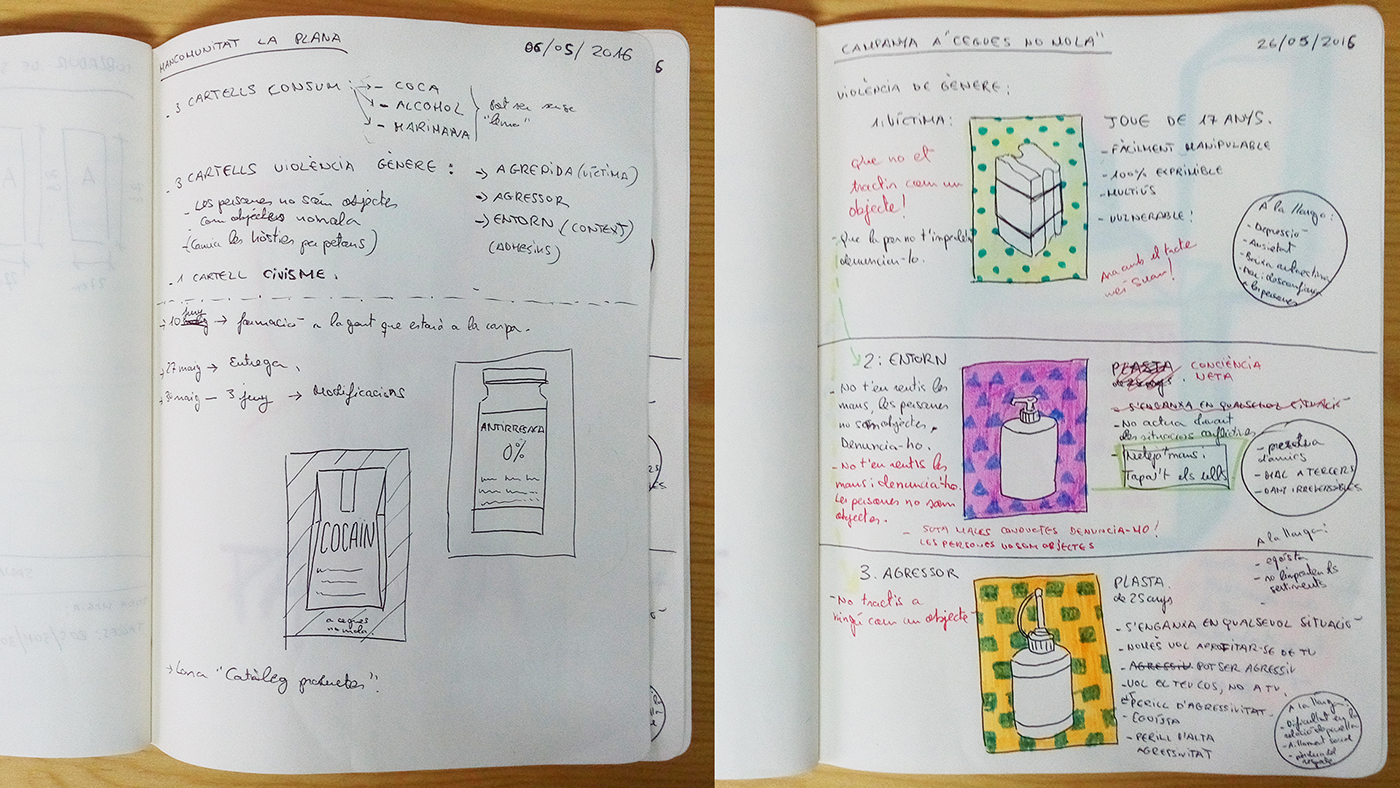 MANCOMUNITAT LA PLANA
06/05/2016
- 3 CARTELLS CONSUM:
→ - COCA
→ - ALCOHOL
→ - MARIHUANA
pot ser sense
"lema"
- 3 CARTELLS VIOLÈNCIA GÈNERE:
- Les persones no són objectes
com objectes no mola
- (Canvia les hòsties per petons)
→ AGREDIDA (VÍCTIMA)
→ AGRESSOR
→ ENTORN (CONTEXT)
(ADHESIUS)
- 1 CARTELL CIVISME.
→ 10 juny → formació a la gent que estarà a la carpa.
→ 27 maig → Entrega.
→ 30 maig - 3 juny → Modificacions
ANTIRRESACA
0%
COCAIN
a cegues
no mola.
→ "Catàleg productes".
6
A
A
CAMPANYA A "CEGUES NO MOLA"
26/05/2016
VIOLÈNCIA DE GÈNERE:
1: VÍCTIMA:
Que no et
tractin com un
objecte!
- Que la por no t'impedeixi
denunciar-lo.
JOVE DE 17 ANYS.
- FÀCILMENT MANIPULABLE
- 100% EXPRIMIBLE
- MULTIÚS
- VULNERABLE!
Ara amb el tacte
més suau!
A la llarga:
- Depressió
- Ansietat
- Baixa autoestima
- Por i desconfiança
a les persones
2: ENTORN
- No t'en rentis les
mans, les persones
no són objectes.
Denuncia-ho.
- No t'en rentis les
mans i denuncia-ho.
Les persones no som
objectes.
PLASTA CONCIÈNCIA
NETA
- S'ENGANXA EN QUALSEVOL SITUACIÓ
- No actua davant
les situacions conflictives
- Neteja't mans.
Tapa't els ulls
- pèrdua
d'amics
- MAL A TERCERS
- DANY IRREVERSIBLES
- SOTA MALES CONDUCTES DENUNCIA-HO!
LES PERSONES NO SOM OBJECTES
A la llarga:
- egoista
- no t'importen els
sentiments
3. AGRESSOR
- No tractis a
ningú com un objecte
PLASTA
de 25 anys
- S'ENGANXA EN QUALSEVOL SITUACIÓ
- NOMÉS VOL APROFITAR-SE DE TU
- AGRESSIU POT SER AGRESSIU
- VOL EL TEU COS, NO A TU.
- PERILL D'AGRESSIVITAT
- EGOÏSTA
- PERILL D'ALTA
AGRESSIVITAT
A la llarga:
- Dificultat en la
relació de parella
- Aïllament social